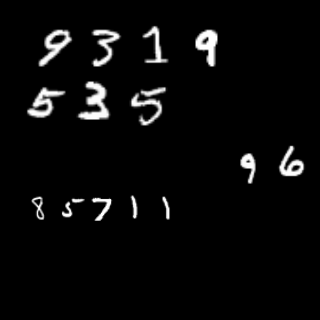 9319
535
96
85711